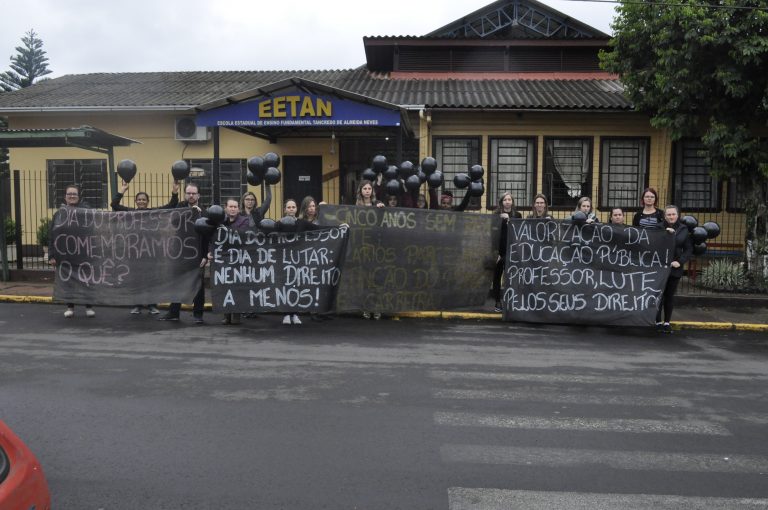 EETAN
ESCOLA ESTADUAL DE ENSINO FUNDAMENTAL TANCREDO DE ALMEIDA NEVES
DIA DO PROFESSOR
COMEMORAMOS
O QUÊ?
DIA DO PROFESSOR
É DIA DE LUTAR:
NENHUM DIREITO
A MENOS!
CINCO ANOS SEM
CARREIRA
VALORIZAÇÃO DA
EDUCAÇÃO PÚBLICA!
PROFESSOR, LUTE
PELOS SEUS DIREITOS!